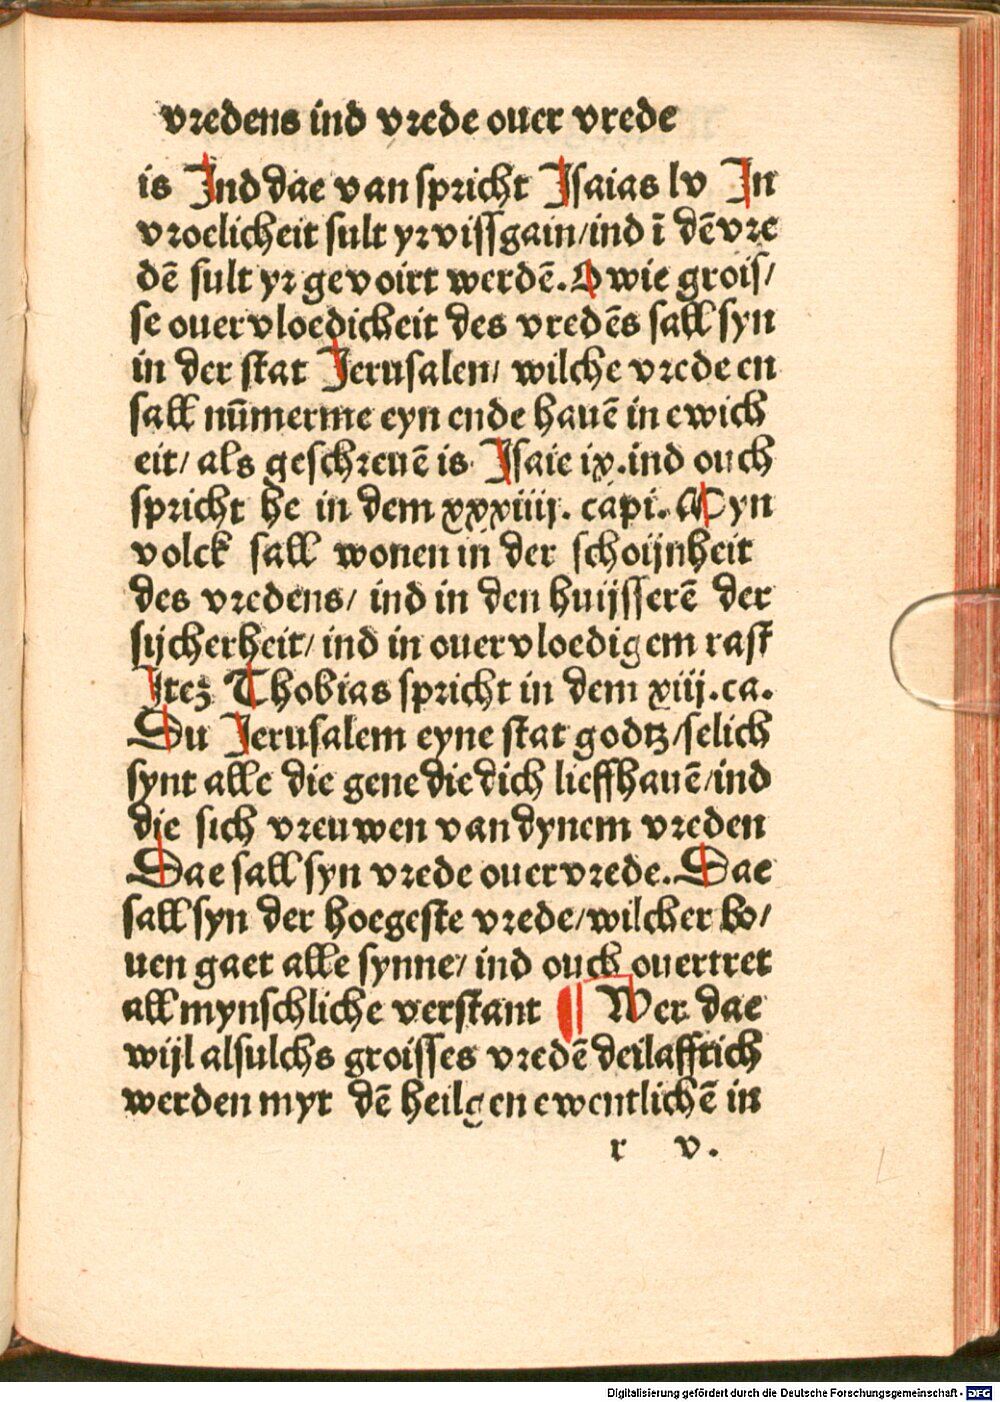 vredens ind vrede ouer vrede
is Ind dae van spricht Isaias lv In
vroelicheit sult yr vissgain/ind ī dē vre
dē sult yr gevoirt werdē. O wie grois/
se ouervloedicheit des vredēs sall syn
in der stat Jerusalen/ wilche vrede en
sall nūmerme eyn ende hauē in ewich
eit/ als geschreuē is Isaie ix. ind ouch
spricht he in dem xxxiiij. capi. Myn
volck sall wonen in der schoijnheit
des vredens/ ind in den huijsserē der
sijcherheit/ ind in ouervloedigem rast
Iteꝫ Thobias spricht in dem xiij. ca.
Du Jerusalem eyne stat godtz/selich
synt alle die gene die dich lieffhauē/ind
die sich vreuwen van dynem vreden
Dae sall syn vrede ouer vrede. Dae
sall syn der hoegeste vrede/wilcher bo/
uen gaet alle synne/ ind ouch ouertret
all mynschliche verstant ¶ Wer dae
wijl alsulchs groisses vredē deilafftich
werden myt dē heilgen ewentlichē in
r v.
Digitalisierung gefördert durch die Deutsche Forschungsgemeinschaft - DFG